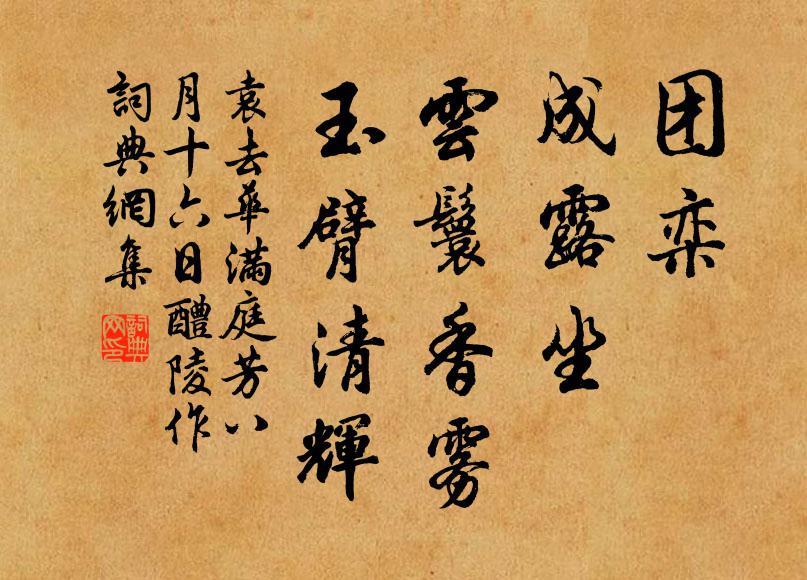 团栾
成露坐
雲鬟香雾
玉臂清輝
袁去華滿庭芳八
月十六日醴陵作
詞典網集
詞典网印